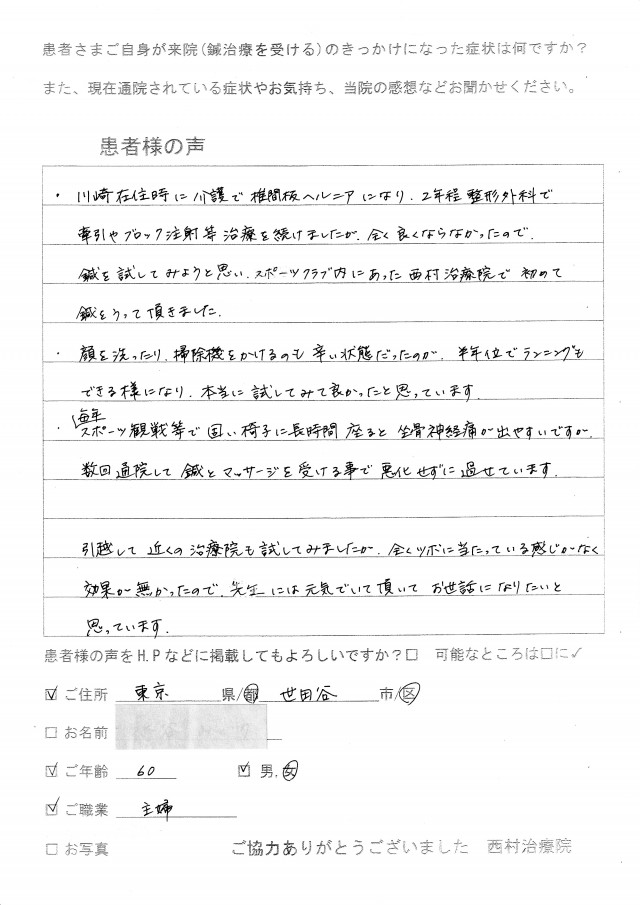 患者さまご自身が来院(鍼治療を受ける)のきっかけになった症状は何ですか?
また、現在通院されている症状やお気持ち、当院の感想などお聞かせください。
患者様の声
・川崎在住時に介護で椎間板ヘルニアになり、2年程整形外科で
牽引やブロック注射等治療を続けましたが、全く良くならなかったので、
鍼を試してみようと思い、スポーツクラブ内にあった西村治療院で初めて
鍼をうって頂きました。
・顔を洗ったり、掃除機をかけるのも辛い状態だったのが、半年位でランニングも
できる様になり、本当に試してみて良かったと思っています。
・毎年スポーツ観戦等で固い椅子に長時間座ると坐骨神経痛が出やすいですが、
数回通院して鍼とマッサージを受ける事で悪化せずに過せています。
引越して近くの治療院も試してみましたが、全くツボに当たっている感じがなく
効果が無かったので、先生には元気でいて頂いてお世話になりたいと
思っています。
患者様の声をH.Pなどに掲載してもよろしいですか?□ 可能なところは□に✓
☑ ご住所 東京 県/都 世田谷 市/区
□ お名前
☑ ご年齢 60 ☑ 男,女
☑ ご職業 主婦
□ お写真 ご協力ありがとうございました 西村治療院